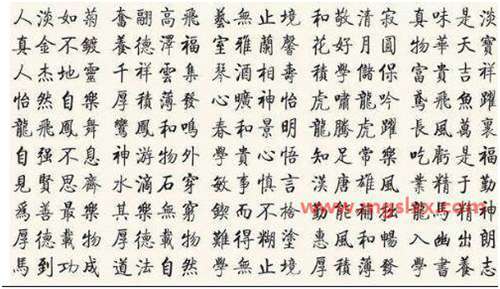 人淡如菊 奮翮高飛 藝無止境 和敬清寂 真味是淡
真金不鍍 養德澤福 室雅蘭馨 花好月圓 物華天寶
人杰地靈 千祥雲集 琴 相壽 積學儲 富貴吉祥
怡然自樂 厚積薄發 心曠神怡 虎嘯龍吟 鳶飛魚躍
龍飛鳳舞 鸞鳳和鳴 春和景明 龍騰虎躍 長風萬里
自强不息 神游物外 學貴心悟 知足常樂 吃虧是福
見賢思齊 水滴石穿 敏事慎言 漢唐雄風 業精于勤
爲善最樂 其樂無窮 鍥而不 勤能補拙 龍馬精神
厚德載物 厚德載物 難得糊塗 惠風和暢 入幽出朗
馬到功成 道法自然 學無止境 厚積薄發 學書養志
www.mgslyx.com